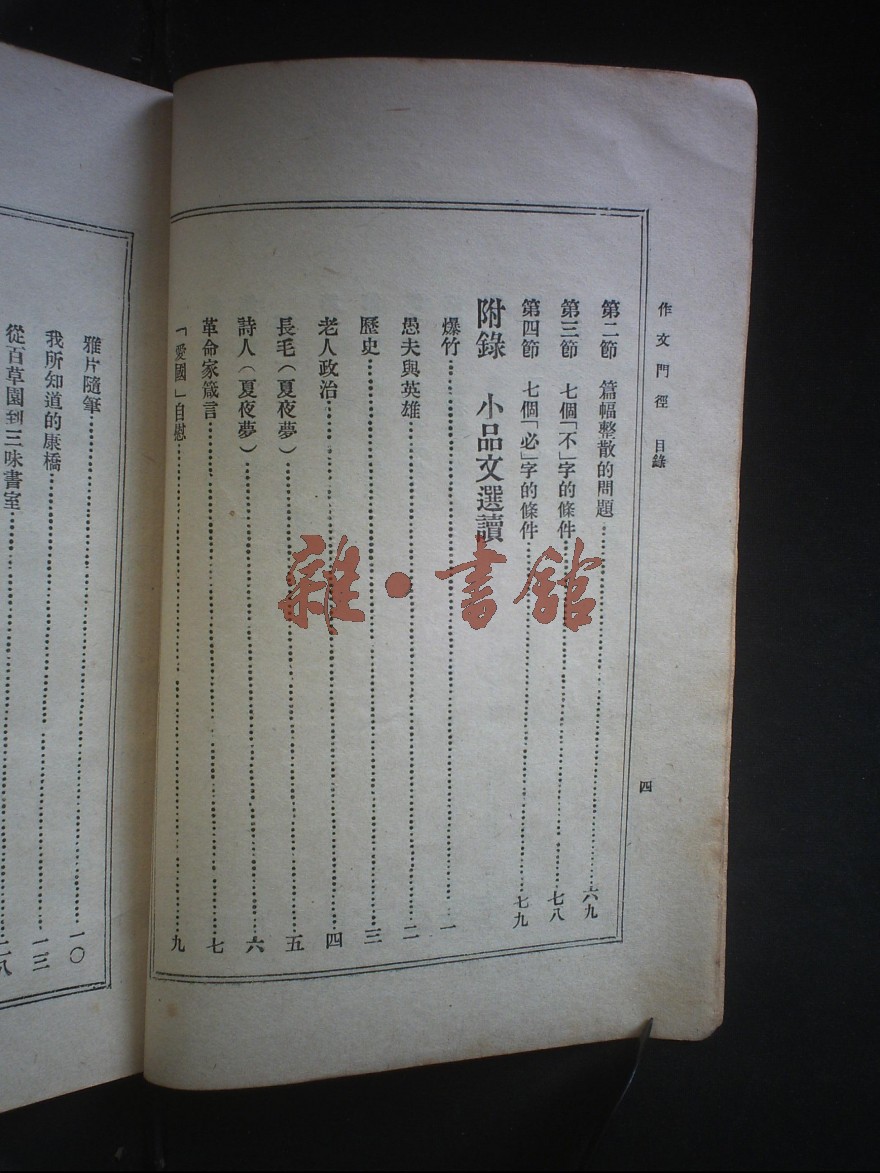 作文門徑 目錄
四
第二節 篇幅整散的問題……六九
第三節 七個「不」字的條件……七八
第四節 七個「必」字的條件……七九
附錄 小品文選讀
爆竹……一
愚夫與英雄……二
歷史……三
老人政治……四
長毛（夏夜夢）……五
詩人（夏夜夢）……六
革命家箴言……七
「愛國」自慰……九
雅片隨筆……一〇
我所知道的康橋……一三
從百草園到三味書室……二八
雜·書館